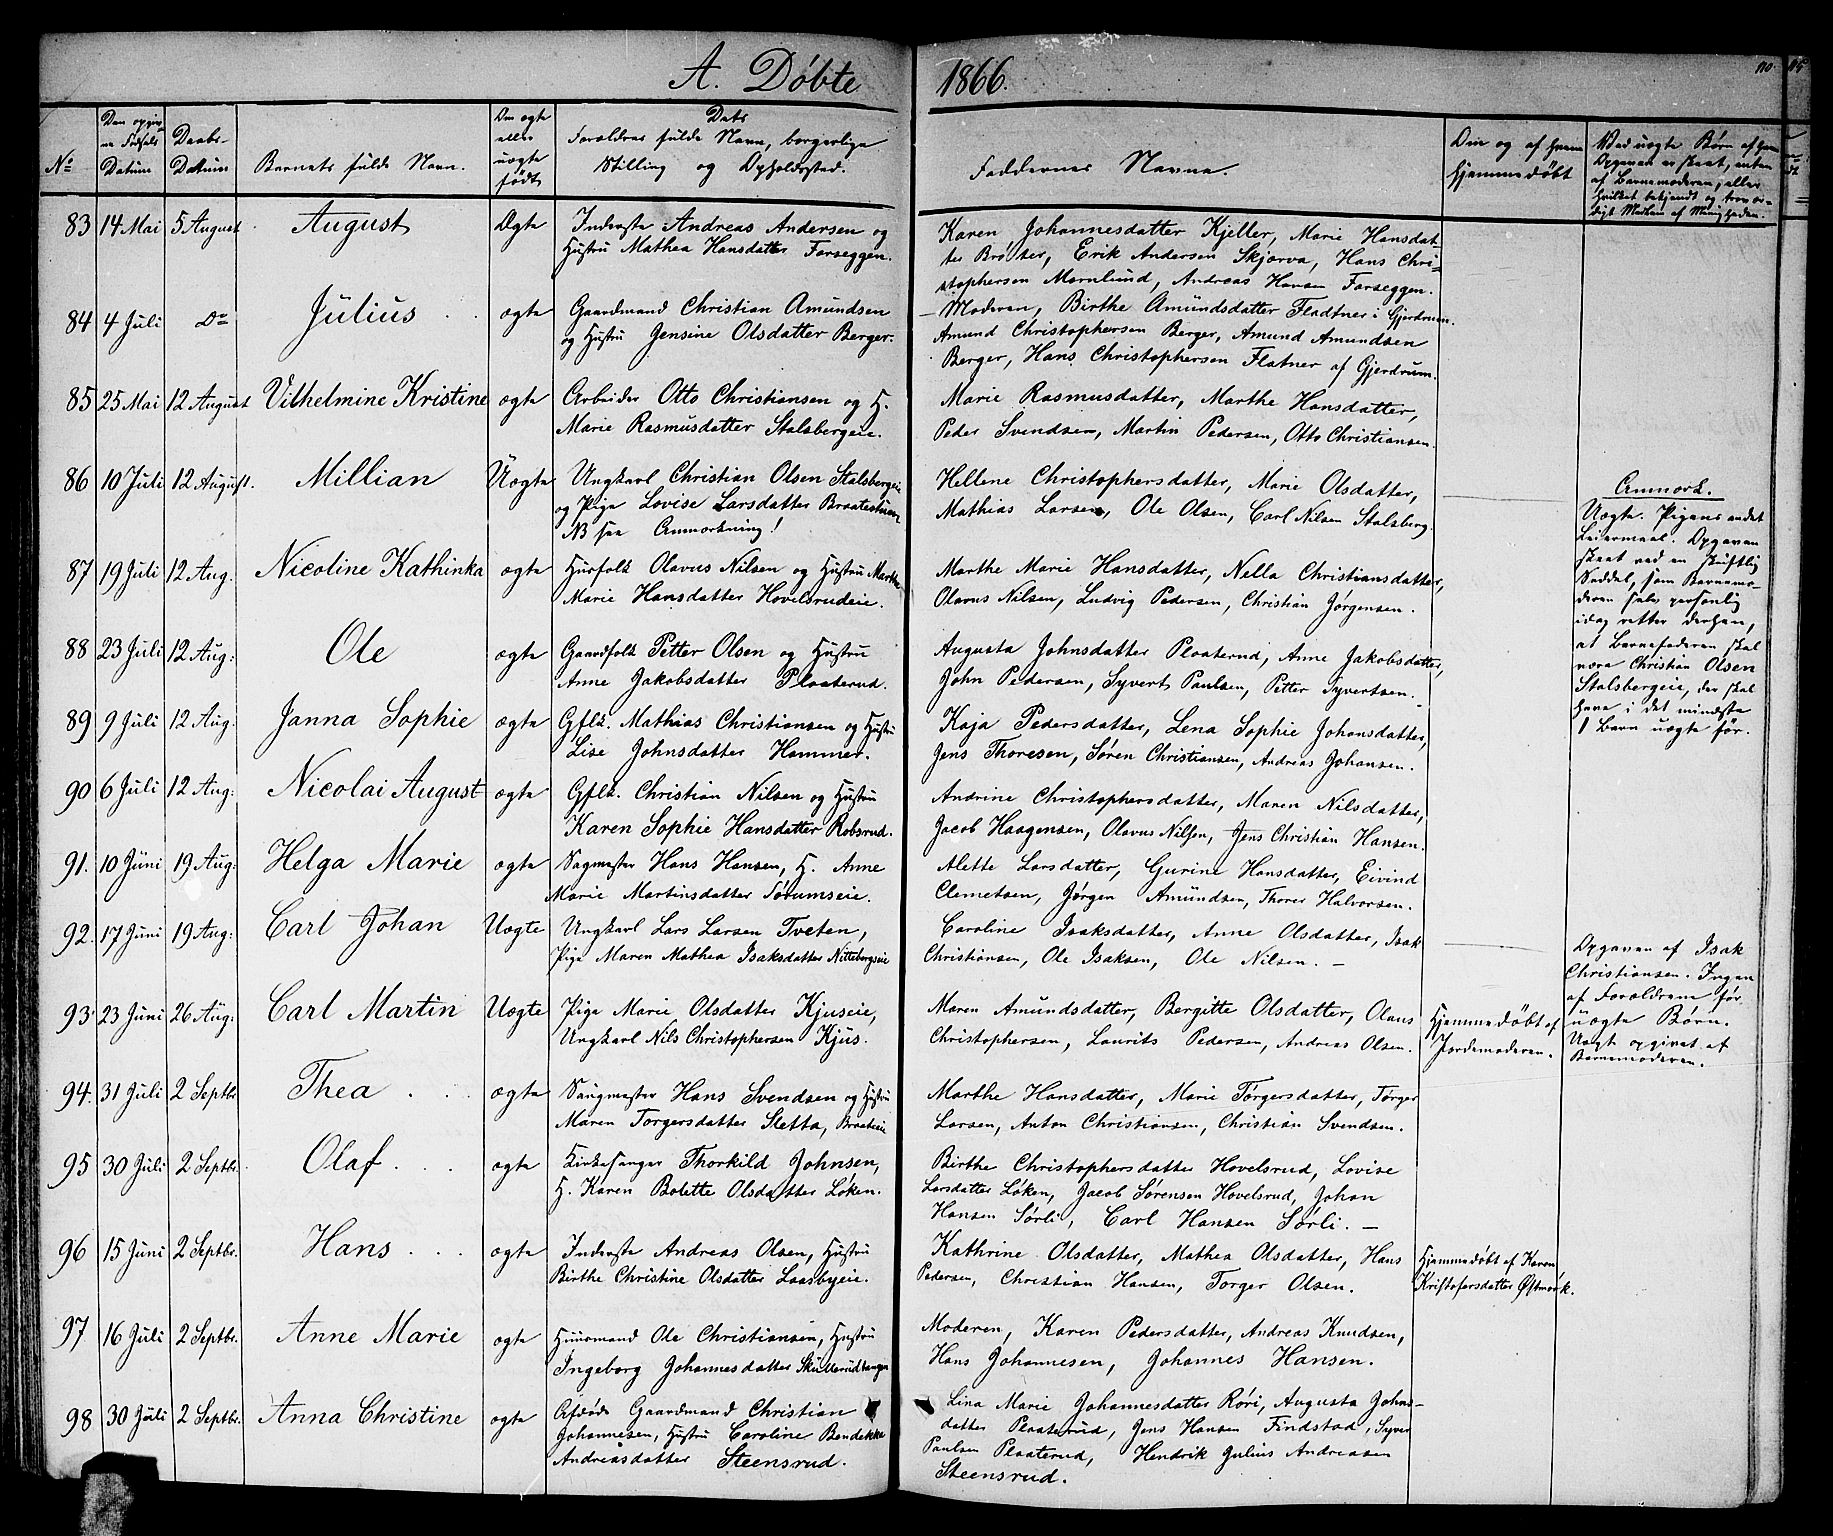 A. Döbte 1866.
110.
No
Den opgiv-
ne Födsels
Datum
Daabs-
Datum
Barnets fulde Navn.
Om ægte
eller
uægte
født
Dets
Forældres fulde Navn, borgerlige
Stilling og Opholdssted.
Faddernes Navne.
Om og af hvem
hjemmedöbt
83 14 Mai 5 August August Ægte Inderste Andreas Andersen og
Hustru Mathea Hansdatter Farseggen.
Karen Johannesdatter Kjeller, Marie Hansdat-
ter Bröter, Erik Andersen Skjærva, Hans Chri-
stophersen Mornlund, Andreas Hansen Farseggen.
84 4 Juli Do Julius ægte Gaardmand Christian Amundsen
og Hustru Jensine Olsdatter Berger.
Moderen, Birthe Amundsdatter Fladtner i Gjerdrum.
Amund Christophersen Berger, Amund Amundsen
Berger, Hans Christophersen Flatner af Gjerdrum.
85 25 Mai 12 August Vilhelmine Kristine ægte Arbeider Otto Christiansen og H.
Marie Rasmusdatter Stalsbergeie.
Marie Rasmusdatter, Marthe Hansdatter,
Peder Svendsen, Martin Pedersen, Otto Christiansen.
86 10 Juli 12 August. Millian Uægte Ungkarl Christian Olsen Stalsbergeie
og Pige Lovise Larsdatter Braatestuen
NB see Anmærkning!
Hellene Christophersdatter, Marie Olsdatter,
Mathias Larsen, Ole Olsen, Carl Nilsen Stalsberg.
Anmærk.
Uægte. Pigens andet
Leiermaal. Opgaven
skeet ved en skriftlig
Seddel, som Barnemo-
deren selv personlig
idag retter derhen,
at Barnefaderen skal
være Christian Olsen
Stalsbergeie, der skal
have i det mindste
1 Barn uægte för.
87 19 Juli 12 Aug. Nicoline Kathinka ægte Husfolk Olavus Nilsen og Hustru Marthe
Marie Hansdatter Hovelsrudeie.
Marthe Marie Hansdatter, Nella Christiansdatter,
Olavus Nilsen, Ludvig Pedersen, Christian Jørgensen.
88 23 Juli 12 Aug: Ole ægte Gaardfolk Petter Olsen og Hustru
Anne Jakobsdatter Plaaterud.
Augusta Johnsdatter Plaaterud, Anne Jakobsdatter,
John Pedersen, Syvert Paulsen, Petter Syvertsen.
89 9 Juli 12 Aug: Janna Sophie ægte Gflk. Mathias Christiansen og Hustru
Lise Johnsdatter Hammer.
Kaja Pedersdatter, Lena Sophie Johansdatter,
Jens Thoresen, Søren Christiansen, Andreas Johansen.
90 6 Juli 12 Aug: Nicolai August ægte Gflk. Christian Nilsen og Hustru
Karen Sophie Hansdatter Robsrud.
Andrine Christophersdatter, Maren Nilsdatter,
Jacob Haagensen, Olavus Nilsen, Jens Christian Hansen.
91. 10 Juni 19 Aug: Helga Marie ægte Sagmester Hans Hansen, H. Anne
Marie Martinsdatter Sørumseie.
Alette Larsdatter, Gurine Hansdatter, Eivind
Clemetsen, Jørgen Amundsen, Thorer Halvorsen.
92. 17 Juni 19 Aug: Carl Johan Uægte Ungkarl Lars Larsen Tveten,
Pige Maren Mathea Isaksdatter Nittebergseie
Caroline Isaksdatter, Anne Olsdatter, Isak
Christiansen, Ole Isaksen, Ole Nilsen. —
Opgaven af Isak
Christiansen. Ingen
af Forældrene för
uægte Børn.
93. 23 Juni 26 Aug: Carl Martin Uægte Pige Marie Olsdatter Kjuseie,
Ungkarl Nils Christophersen Kjus.
Maren Amundsdatter, Bergitte Olsdatter, Olaus
Christophersen, Laurits Pedersen, Andreas Olsen.
Hjemmedöbt af
Jordemoderen.
Uægt opgivet af
Barnemoderen.
94. 31 Juli 2 Septbr Thea ægte Saugmester Hans Svendsen og Hustru
Maren Torgersdatter Sletta, Braateeie
Marthe Hansdatter, Marie Torgersdatter, Torger
Larsen, Anton Christiansen, Christian Svendsen.
95 30 Juli 2 Septbr. Olaf ægte Kirkesanger Thorkild Johnsen,
H. Karen Bolette Olsdatter Løken.
Birthe Christophersdatter Hovelsrud, Lovise
Larsdatter Løken, Jacob Sörensen Hovelsrud, Johan
Hansen Sörli, Carl Hansen Sörli. —
96 15 Juni 2 Septbr. Hans ægte Inderste Andreas Olsen, Hustru
Birthe Christine Olsdatter Laasbyeie.
Kathrine Olsdatter, Mathea Olsdatter, Hans
Pedersen, Christian Hansen, Torger Olsen.
Hjemmedöbt af Karen
Kristofersdatter Østmork.
97 16 Juli 2 Septbr. Anne Marie ægte Huusmand Ole Christiansen, Hustru
Ingeborg Johannesdatter Skullerudtangen
Moderen, Karen Pedersdatter, Andreas Knudsen,
Hans Johannesen, Johannes Hansen.
98 30 Juli 2 Septbr. Anna Christine ægte Afdøde Gaardmand Christian
Johannesen, Hustru Caroline Bendekke
Andreasdatter Steensrud.
Lina Marie Johannesdatter Röri, Augusta Johns-
datter Plaaterud, Jens Hansen Findstad, Syver
Paulsen Plaaterud, Hendrik Julius Andreasen
Steensrud.